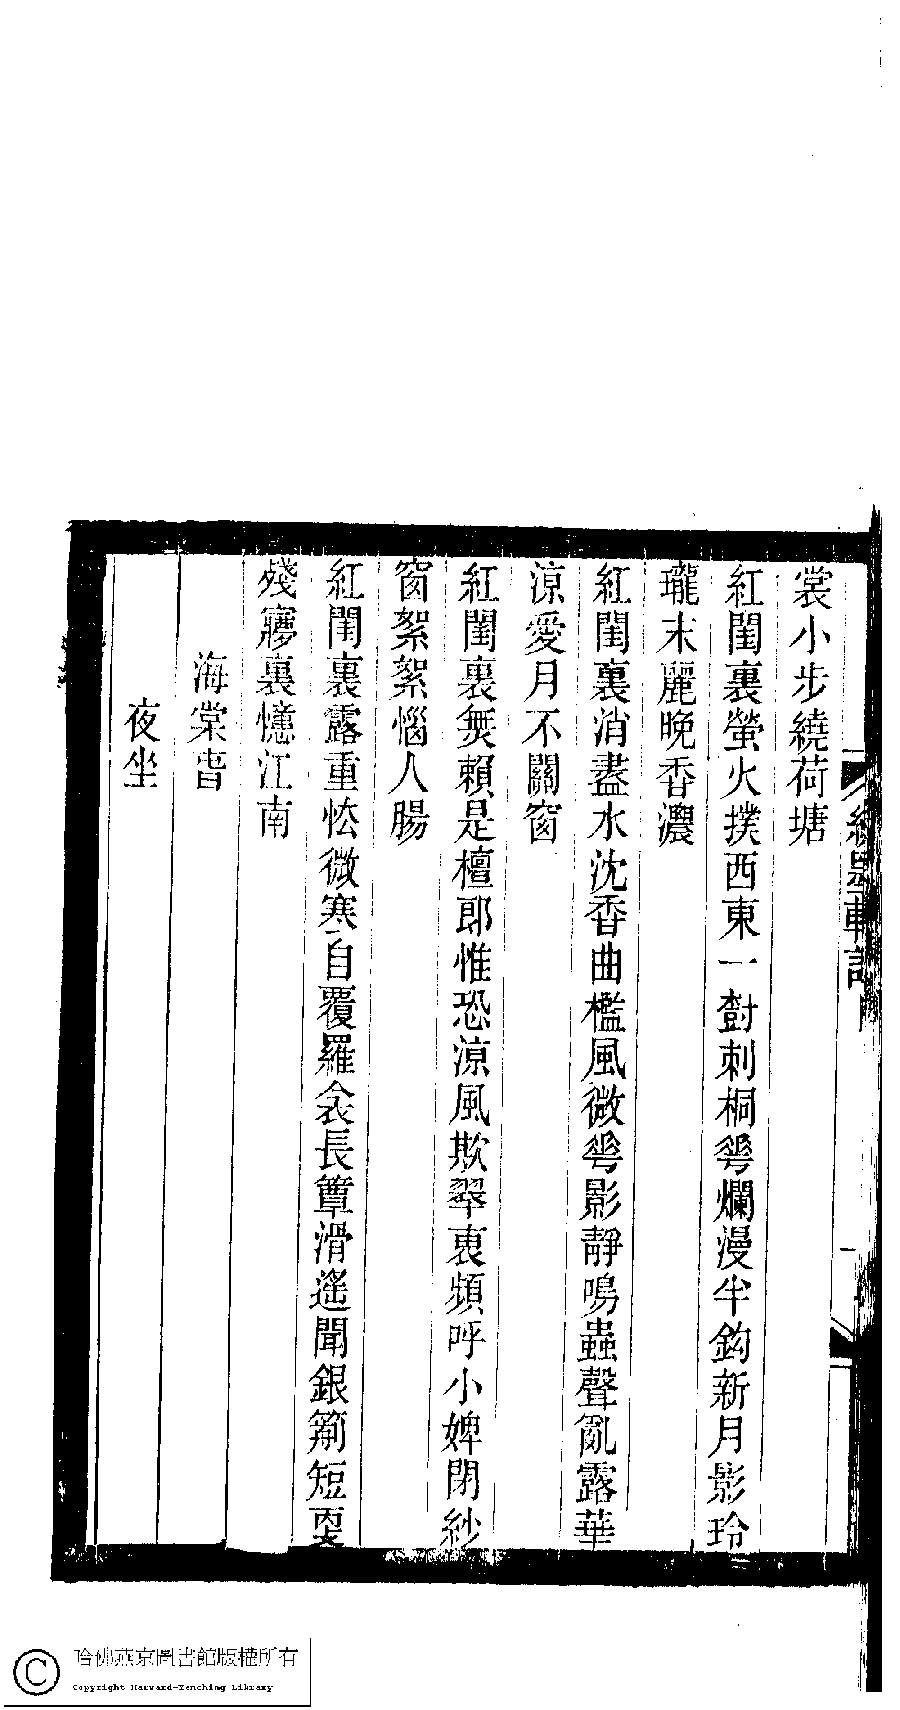 裳小步繞荷塘
紅閨裏螢火撲西東一對刺桐芲爛漫半鉤新月影玲
瓏末麗晚香濃
紅閨裏消盡水沈香曲檻風微芲影靜鳴蟲聲亂露華
涼愛月不關窗
紅閨裏無賴是檀郎惟恐涼風欺翠袖頻呼小婢閉紗
窗絮絮惱人腸
紅閨裏露重怯微寒自覆羅衾長簟滑遙聞銀箭短更
殘寱裏憶江南
海棠春
夜坐
哈佛燕京圖書館版權所有
Copyright Harvard-Yenching Library